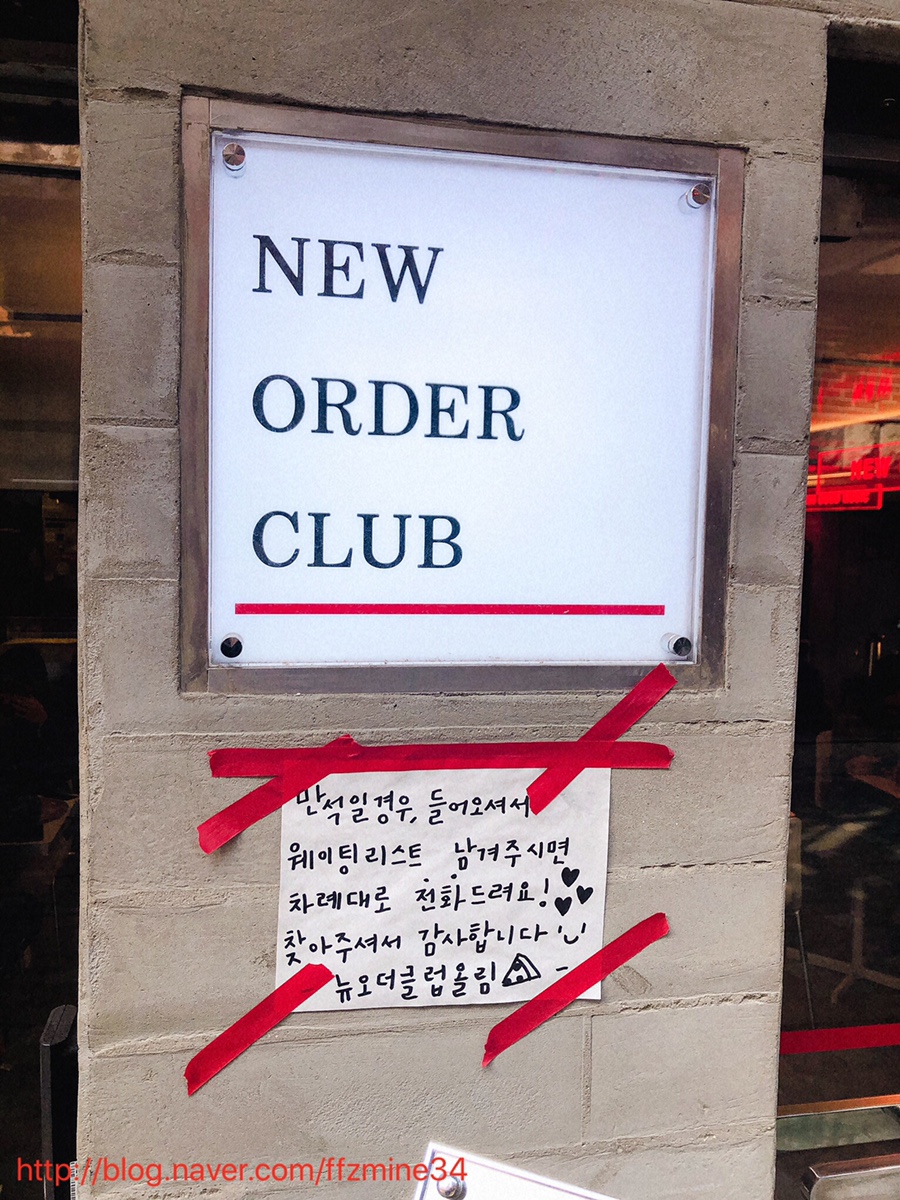 NEW
ORDER
CLUB
NEW
만석일경우, 들어오셔서
웨이팅리스트 남겨주시면
차례대로 전화드려요!
찾아주셔서 감사합니다
- 뉴오더클럽올림 -
http://blog.naver.com/ffzmine34